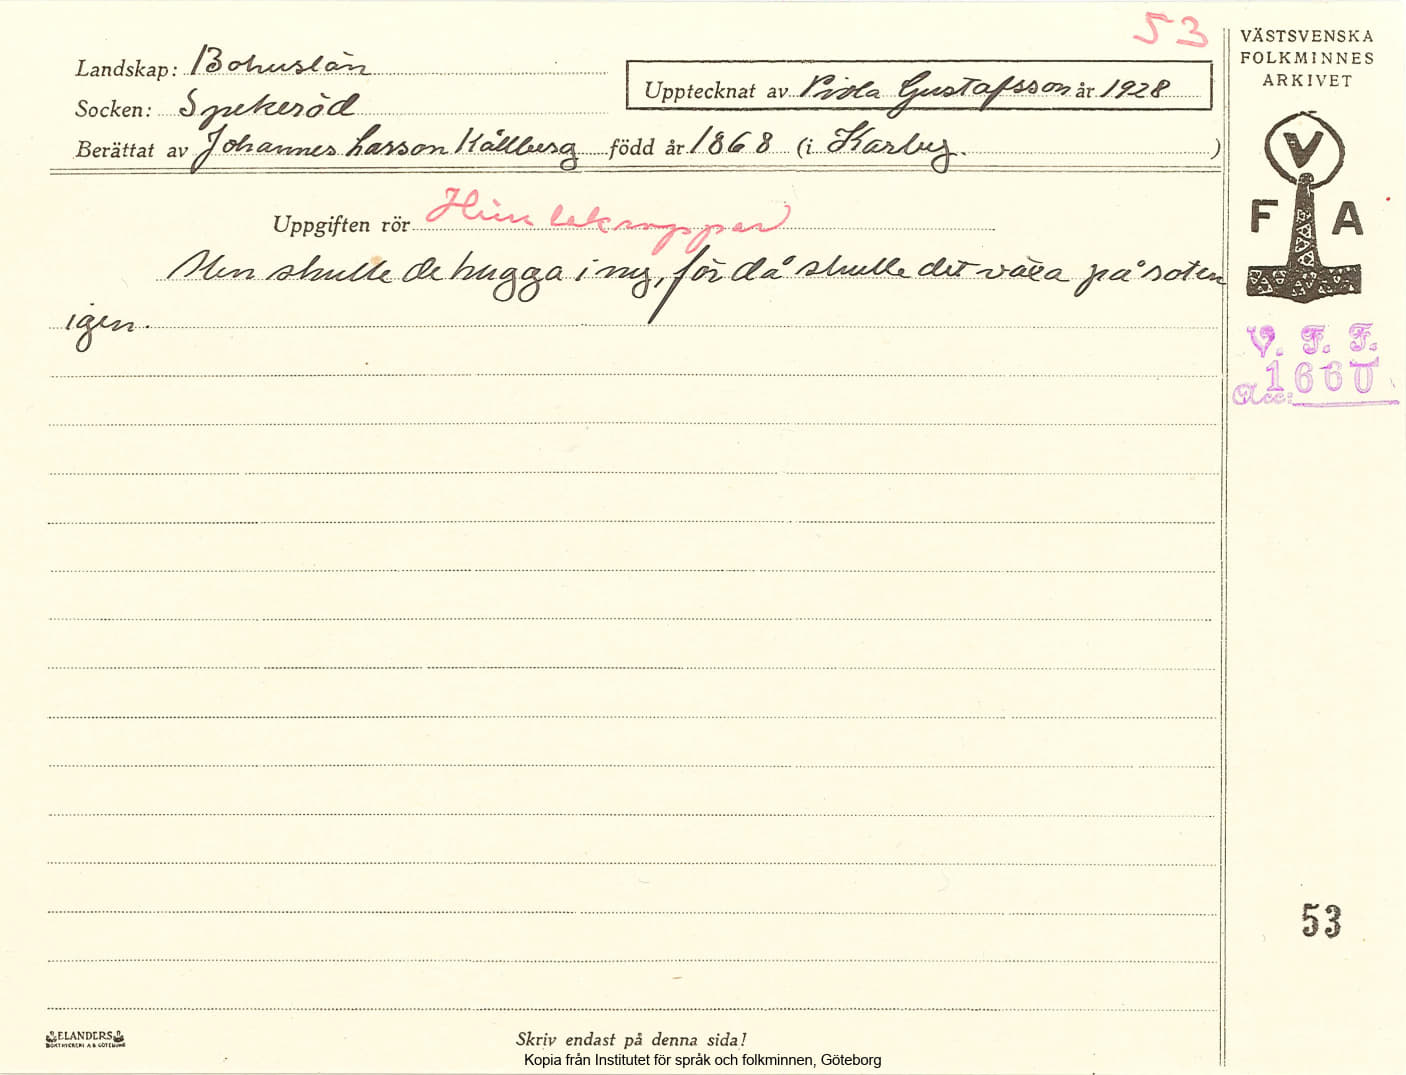 53
VÄSTSVENSKA
FOLKMINNES
ARKIVET
Landskap: Bohuslän
Upptecknat av Viola Gustafsson år 1928
Socken: Spekeröd
Berättat av Johannes Larsson Kållberg född år 1868 (i Karby. )
V
F A
Uppgiften rör Himlakroppar
Men skulle de hugga i ny, för då skulle det växa på roten
igen.
V. F. F.
Acc: 1660
53
ELANDERS
BOKTRYCKERI A B GÖTEBORG
Skriv endast på denna sida!
Kopia från Institutet för språk och folkminnen, Göteborg